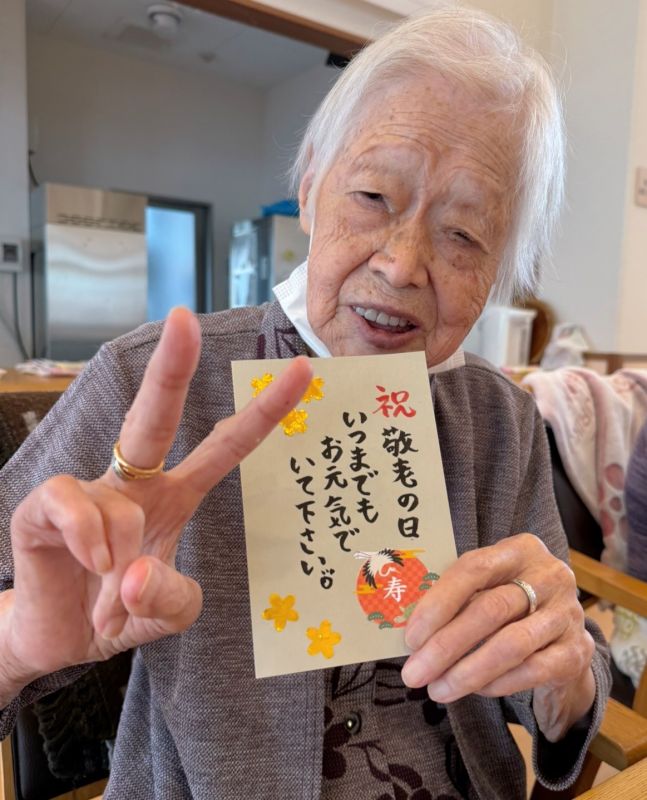 祝
敬老の日
いつまでも
お元気で
いて下さい。
寿